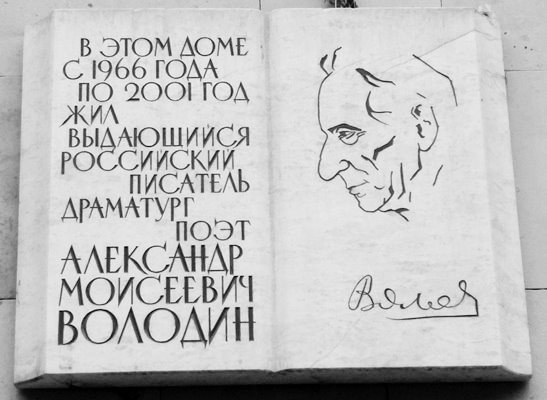 В ЭТОМ ДОМЕ
С 1966 ГОДА
ПО 2001 ГОД
ЖИЛ
ВЫДАЮЩИЙСЯ
РОССИЙСКИЙ
ПИСАТЕЛЬ
ДРАМАТУРГ
ПОЭТ
АЛЕКСАНДР
МОИСЕЕВИЧ
ВОЛОДИН